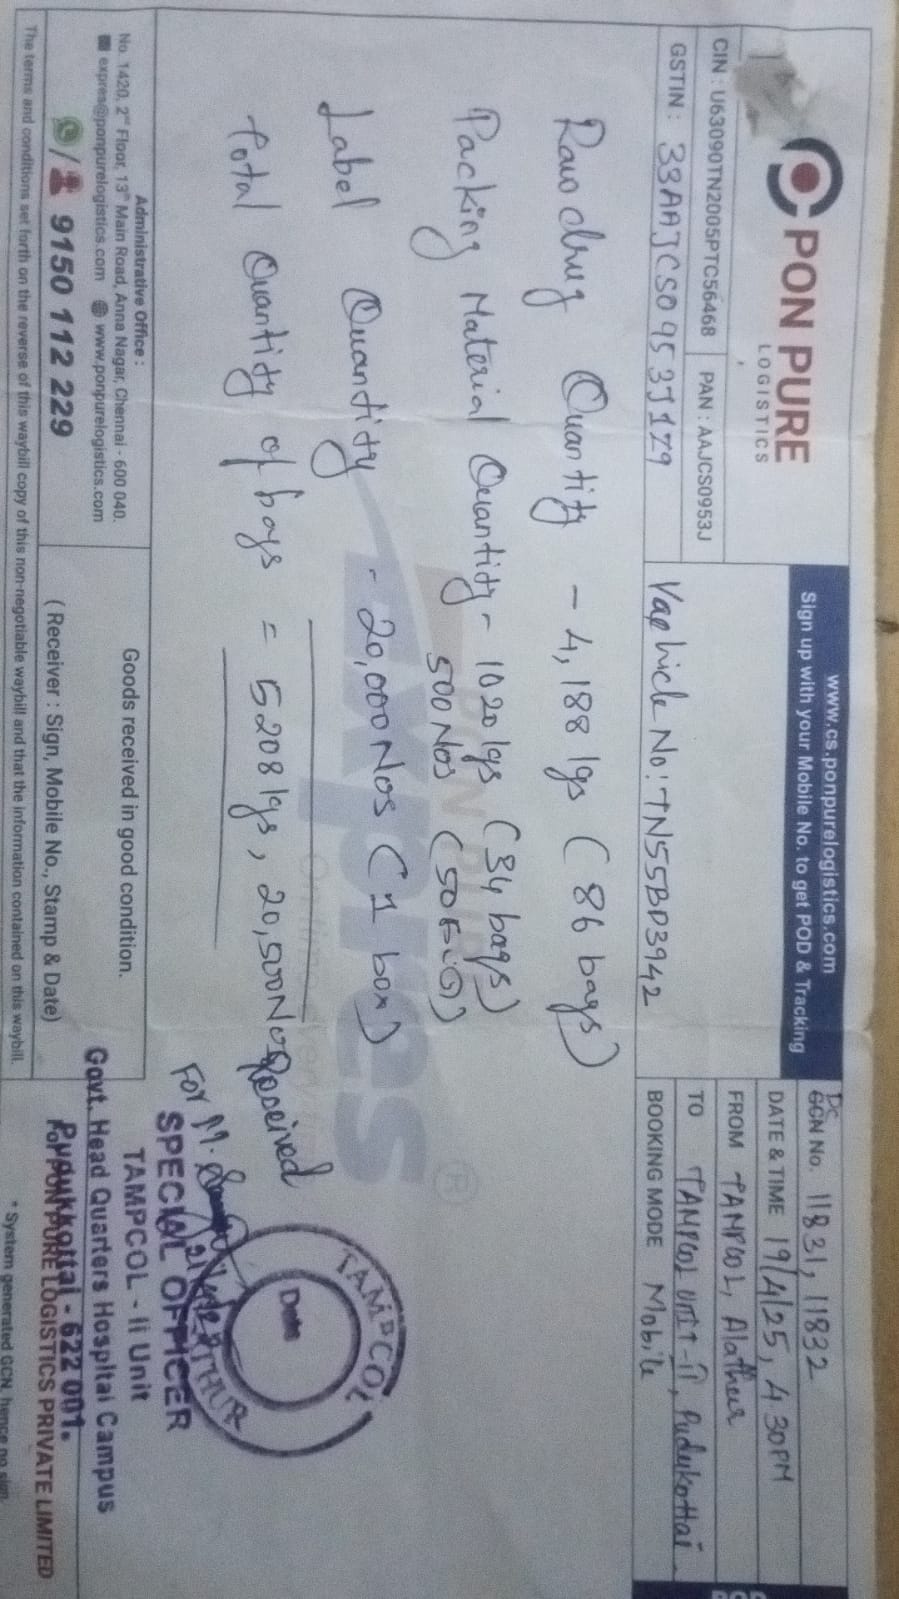 PON PURE
LOGISTICS
CIN : U63090TN2005PTC56468
PAN : AAJCS0953J
GSTIN : 33AAJCS0953J1Z9
www.cs.ponpurelogistics.com
Sign up with your Mobile No. to get POD & Tracking
Vaehicle No: TN55BD3942
DC
GCN No. 11831, 11832
DATE & TIME 19/4/25, 4 30PM
FROM TAMPCOL, Alathur
TO TAMPCOL Unit-II, Pudukottai
BOOKING MODE Mobile
Raw drug Quantity - 4,188 kgs (86 bags)
Packing Material Quantity - 1020 kgs (34 bags)
500 Nos
Label Quantity - 20,000 Nos (1 box)
Total Quantity of bags = 5208 kgs, 20,500 Nos Received
xpres
®
TAMPCOL
For M.
SPECIAL OFFICER
TAMPCOL - II Unit
Govt. Head Quarters Hospital Campus
Pudukkottai - 622 001.
For PON PURE LOGISTICS PRIVATE LIMITED
* System generated GCN, hence no sign
Administrative Office :
No. 1420, 2nd Floor, 13th Main Road, Anna Nagar, Chennai - 600 040.
expres@ponpurelogistics.com www.ponpurelogistics.com
/ 9150 112 229
Goods received in good condition.
( Receiver : Sign, Mobile No., Stamp & Date)
The terms and conditions set forth on the reverse of this waybill copy of this non-negotiable waybill and that the information contained on this waybill.